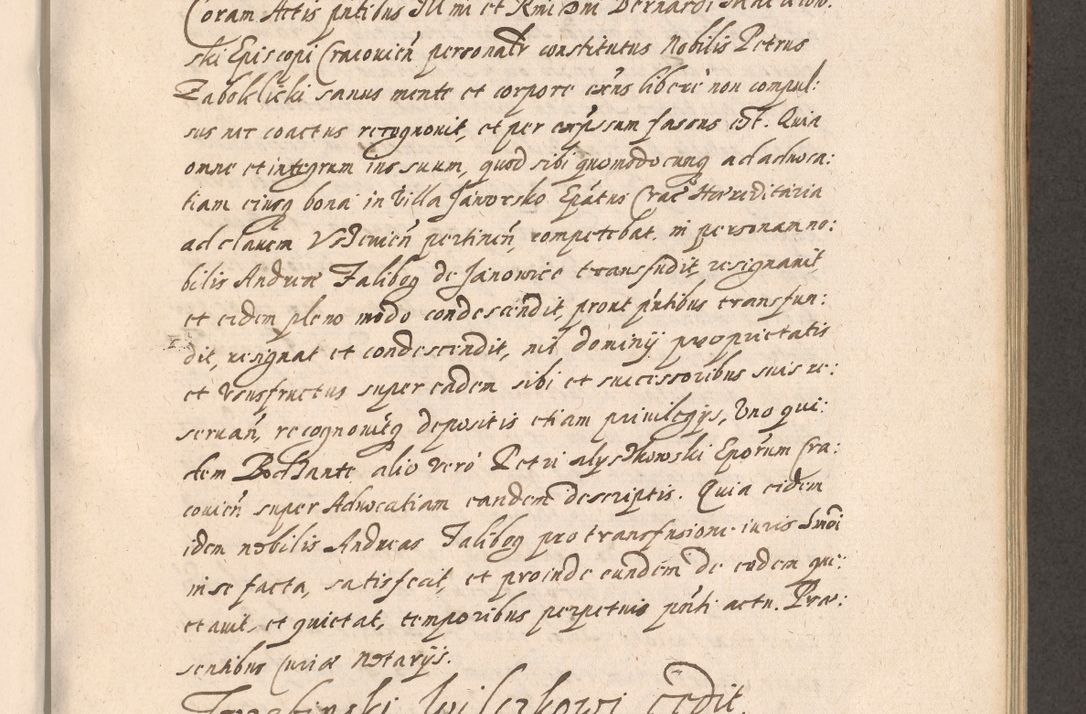 Coram Actis pntibus Illmi et Rmi Dni Bernardi Macieiow:
ski Episcopi Cracouień personalr constitutus Nobilis Petrus
Zaboklicki sanus mente et corpore exńs libere non compul:
sus nec coactus recognouit, et per expssum fassus est. Quia
omne et integrum ius suum, quod sibi quomodocunq ad aduoca:
tiam eiusq bona in Villa Janowsko Epatus Crac Haereditaria
ad clauem pertineń, competebat, in personam no:
bilis Andreae Falibog de Janowice transfudit, resignauit
et eidem pleno modo condescendit, prout pntibus transfun:
dit, resignat et condescendit, nil dominij proprietatis
et Vsusfructus super eadem sibi et successoribus suis re:
seruań, recognouitq depositis etiam priuilegijs, Vno qui:
dem Bodzante alio vero Petri Myszkowski Eporum Cra:
couień super Aduocatiam eandem descriptis. Quia eidem
idem nobilis Andreas Falibog pro transfusione iuris smoi
in se facta, satisfecit, et proinde eundem de eodem qui:
etauit, et quietat, temporibus perpetuis pnti actu. Prae:
sentibus Curiae Notarijs.
cedit.